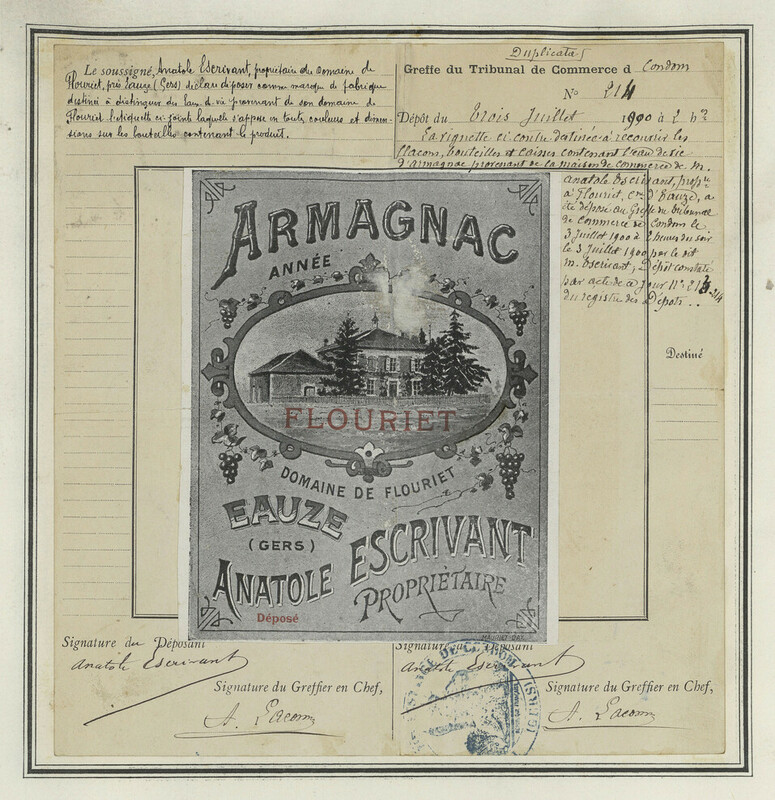 Le soussigné, Anatole Escrivant, propriétaire du domaine de
Flouriet, près Eauze (Gers) déclare déposer comme marque de fabrique
destinée à distinguer des eaux-de-vie provenant de son domaine de
Flouriet l'étiquette ci-jointe laquelle s'appose en toutes couleurs et dimen-
sions sur les bouteilles contenant le produit.
Duplicata
Greffe du Tribunal de Commerce d Condom
N° 214
Dépôt du Trois Juillet 1900 à 2 h
La vignette ci contre destinée à recouvrir les
flacons, bouteilles et caisses contenant l'eau de vie
d'Armagnac provenant de la maison de commerce de M.
Anatole Escrivant, prop
à Flouriet, Cne d'Eauze, a
été déposé au Greffe du Tribunal
de Commerce de Condom le
3 Juillet 1900 à 2 heures du soir
le 3 Juillet 1900 par le dit
M. Escrivant; Dépôt constaté
par acte de ce jour N° 214
du registre des Dépôts.
Destiné
ARMAGNAC
ANNÉE
FLOURIET
DOMAINE DE FLOURIET
EAUZE
(GERS)
ANATOLE ESCRIVANT
PROPRIÉTAIRE
Déposé
Signature du Déposant
Anatole Escrivant
Signature du Greffier en Chef,
A. Lacom
Signature du Déposant
Anatole Escrivant
Signature du Greffier en Chef,
A. Lacom